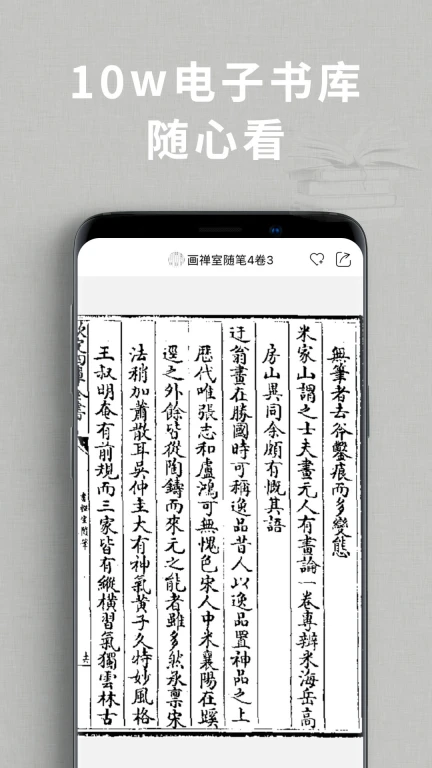 10w电子书库
随心看
画禅室随笔4卷3
無筆者去斧鑿痕而多變態
米家山謂之士夫畫元人有畫論一卷專辨米海岳高
房山異同余頗有慨其語
迂翁畫在勝國時可稱逸品昔人以逸品置神品之上
歷代唯張志和盧鴻可無愧色宋人中米襄陽在蹊
逕之外餘皆從陶鑄而來元之能者雖多然承稟宋
法稍加蕭散耳吳仲圭大有神氣黃子久特妙風格
王叔明奄有前規而三家皆有縱橫習氣獨雲林古
畫禪室隨筆
六